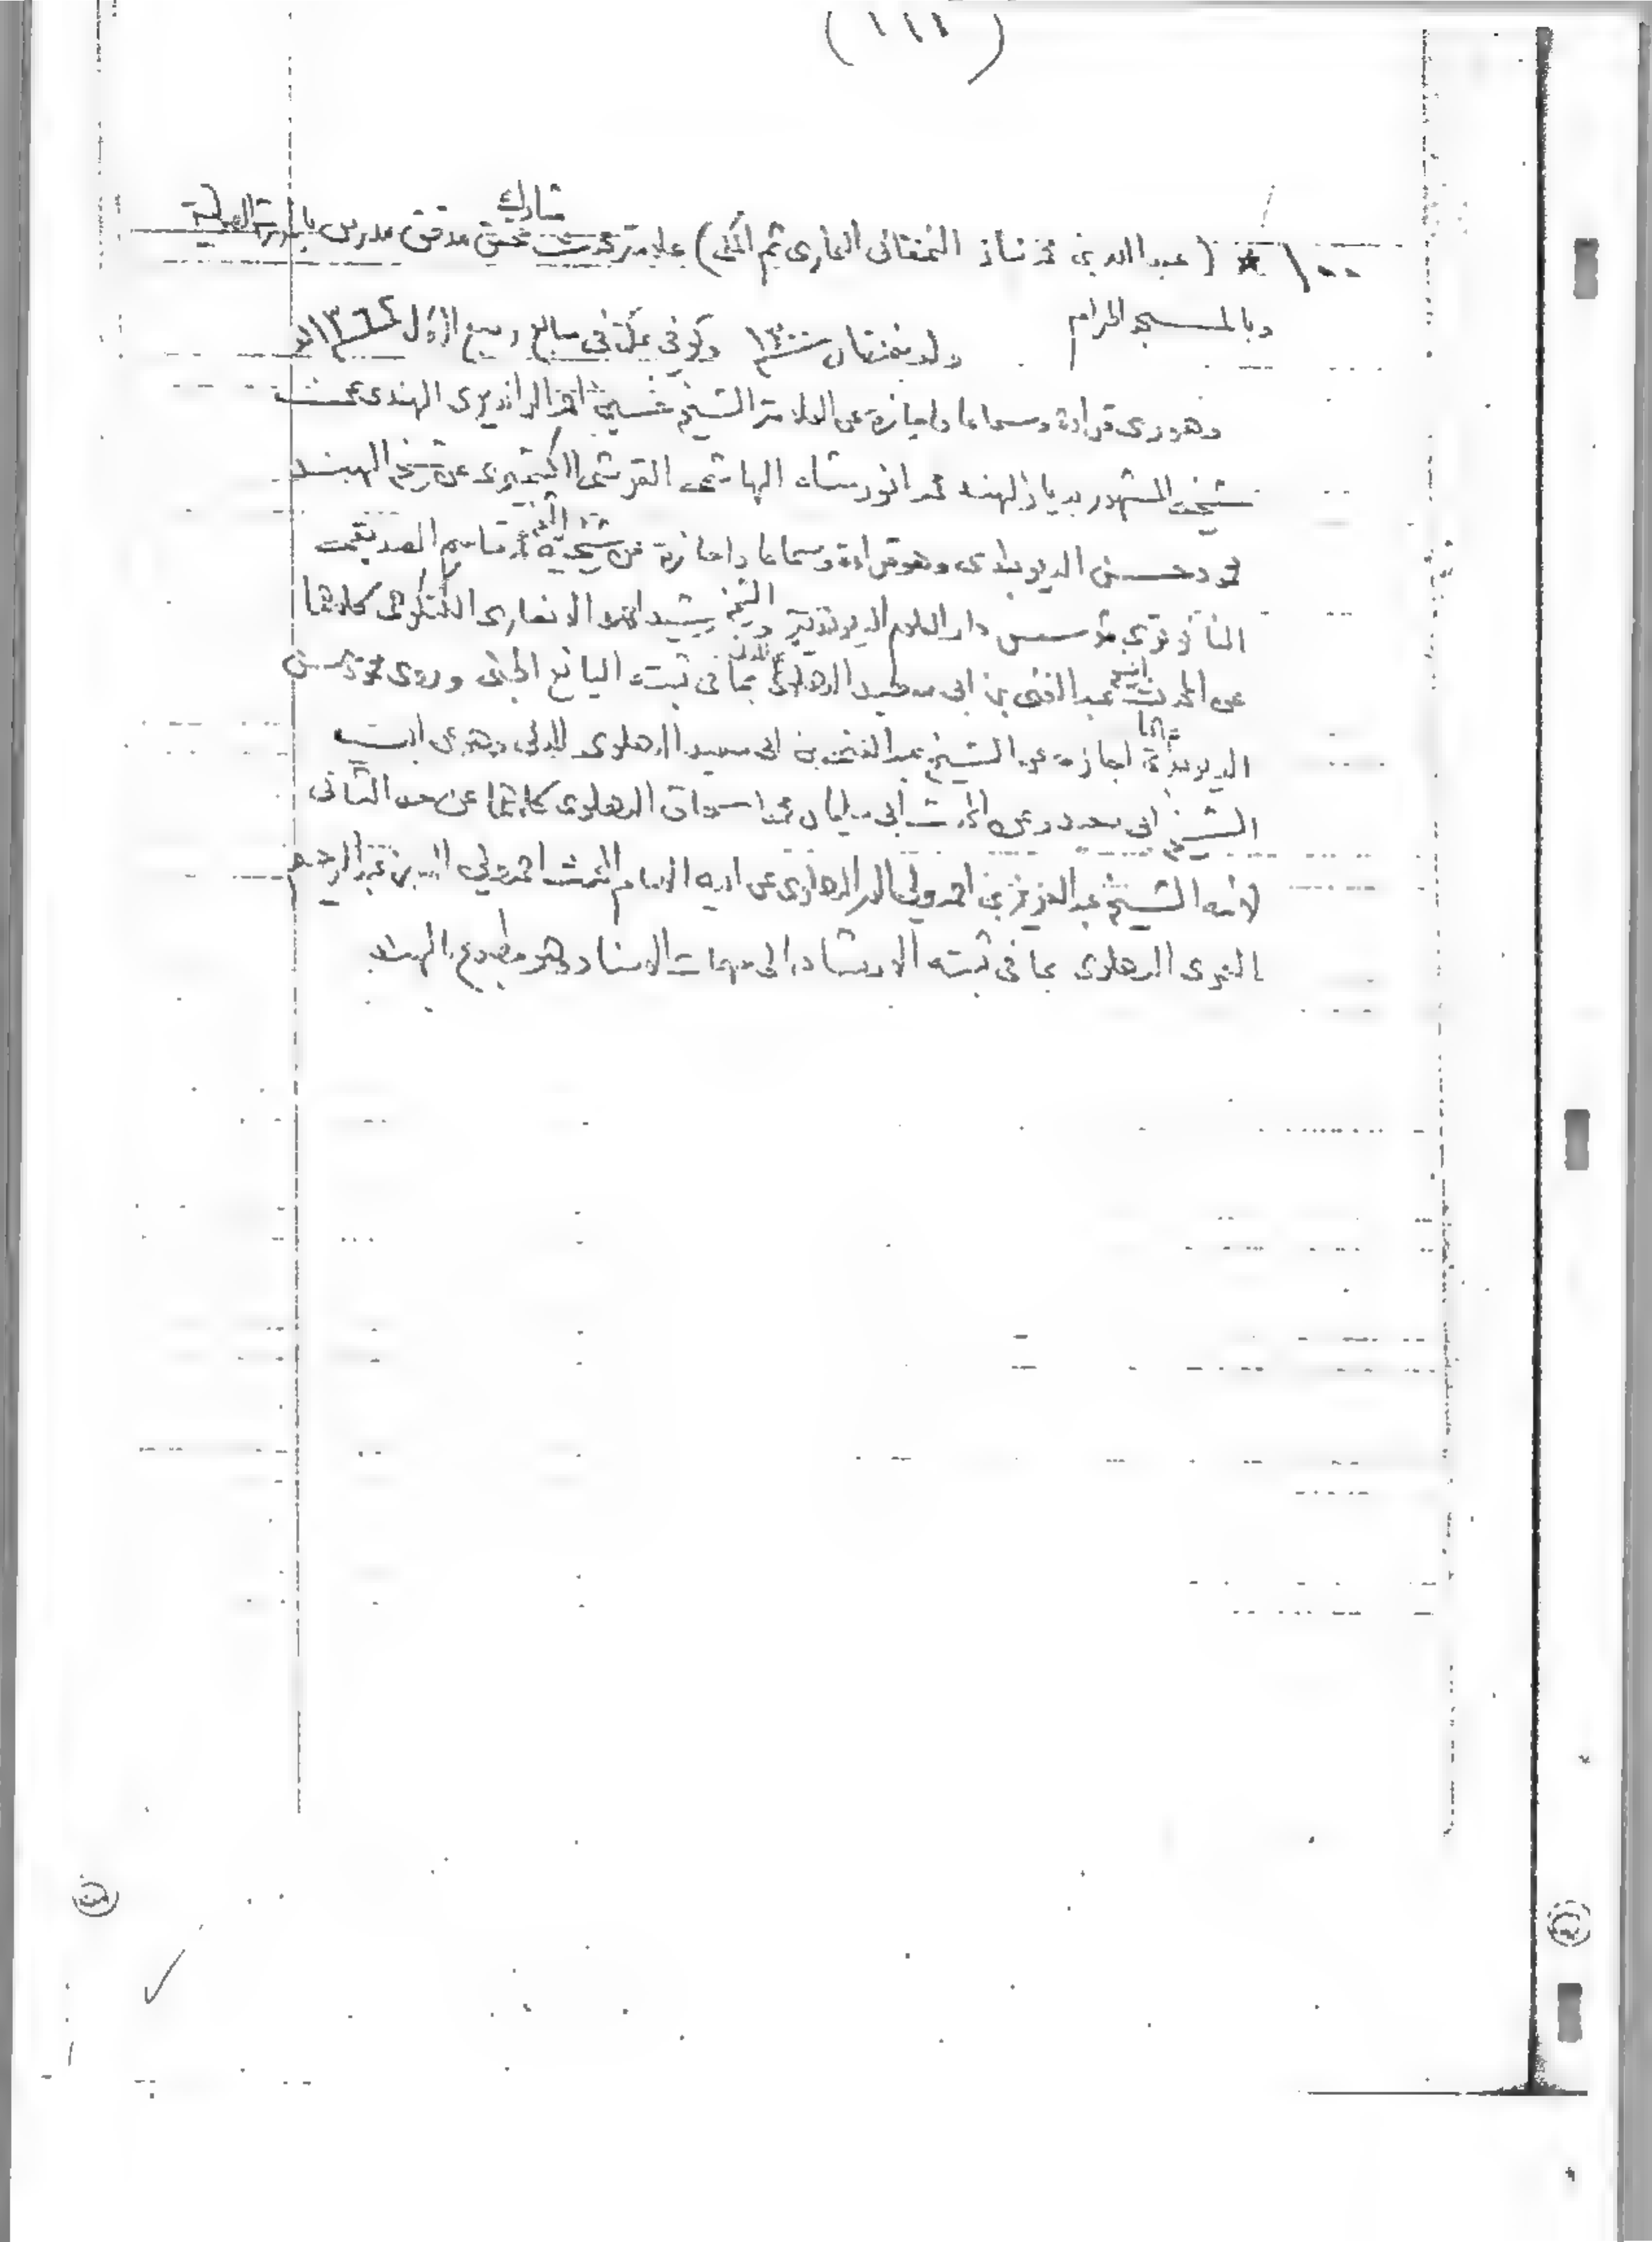 (١١١)
١٠٠ * (عبد الله بن محمد نياز النمنقاني البخاري ثم المكي) علامة محدث مشارك محقق مدقق مدرس بالمدرسة الصولتية
وبالمسجد الحرام
ولد بنمنقان سنة ١٣٠٠ وتوفي بمكة في سابع ربيع الأول
وهو روى قراءة وسماعا وإجازة عن العلامة الشيخ أحمد الرانديري الهندي عن
شيخه المشهور بديار الهند محمد أنور شاه الهاشمي القرشي الكشميري عن شيخ الهند
محمود حسن الديوبندي وهو قراءة وسماعا وإجازة عن شيخيه محمد قاسم الصديقي
النانوتوي مؤسس دار العلوم الديوبندية والشيخ رشيد أحمد الأنصاري الكنكوهي كلاهما
عن المحدث الشيخ عبد الغني بن أبي سعيد الدهلوي المدني بما في ثبته اليانع الجني وروى محمود حسن
الديوبندي إجازة عن الشيخ عبد الغني بن أبي سعيد الدهلوي المدني وهو عن أبيه
الشيخ أبي سعيد وعن المحدث أبي سليمان محمد إسحاق الدهلوي كلاهما عن جد الثاني
لأمه الشيخ عبد العزيز بن أحمد ولي الله الدهلوي عن أبيه الإمام المحدث أحمد ولي الله بن عبد الرحيم
العمري الدهلوي بما في ثبته الإرشاد إلى مهمات الإسناد وهو مطبوع بالهند